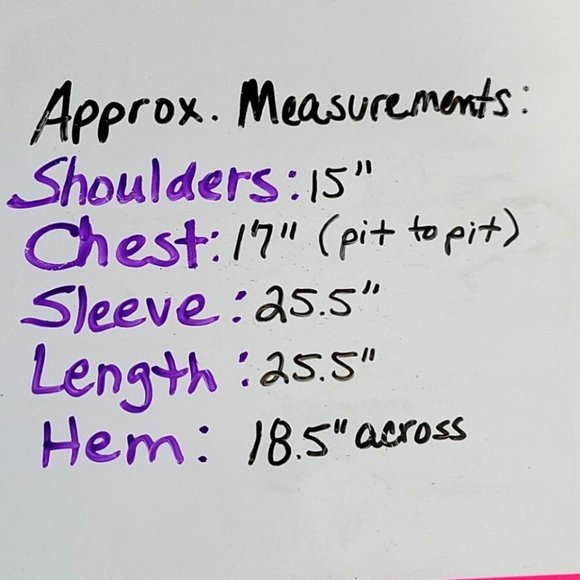 Approx. Measurements:
Shoulders: 15"
Chest: 17" (pit to pit)
Sleeve: 25.5"
Length: 25.5"
Hem: 18.5" across